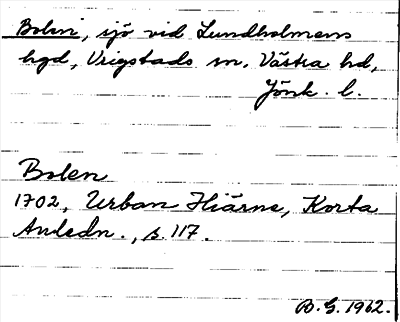 Bolen, sjö vid Lundholmens
hgd, Vrigstads sn, Västra hd,
Jönk. l.
Bolen
1702, Urban Hiärne, Korta
Anledn., s. 117.
B. G. 1962.